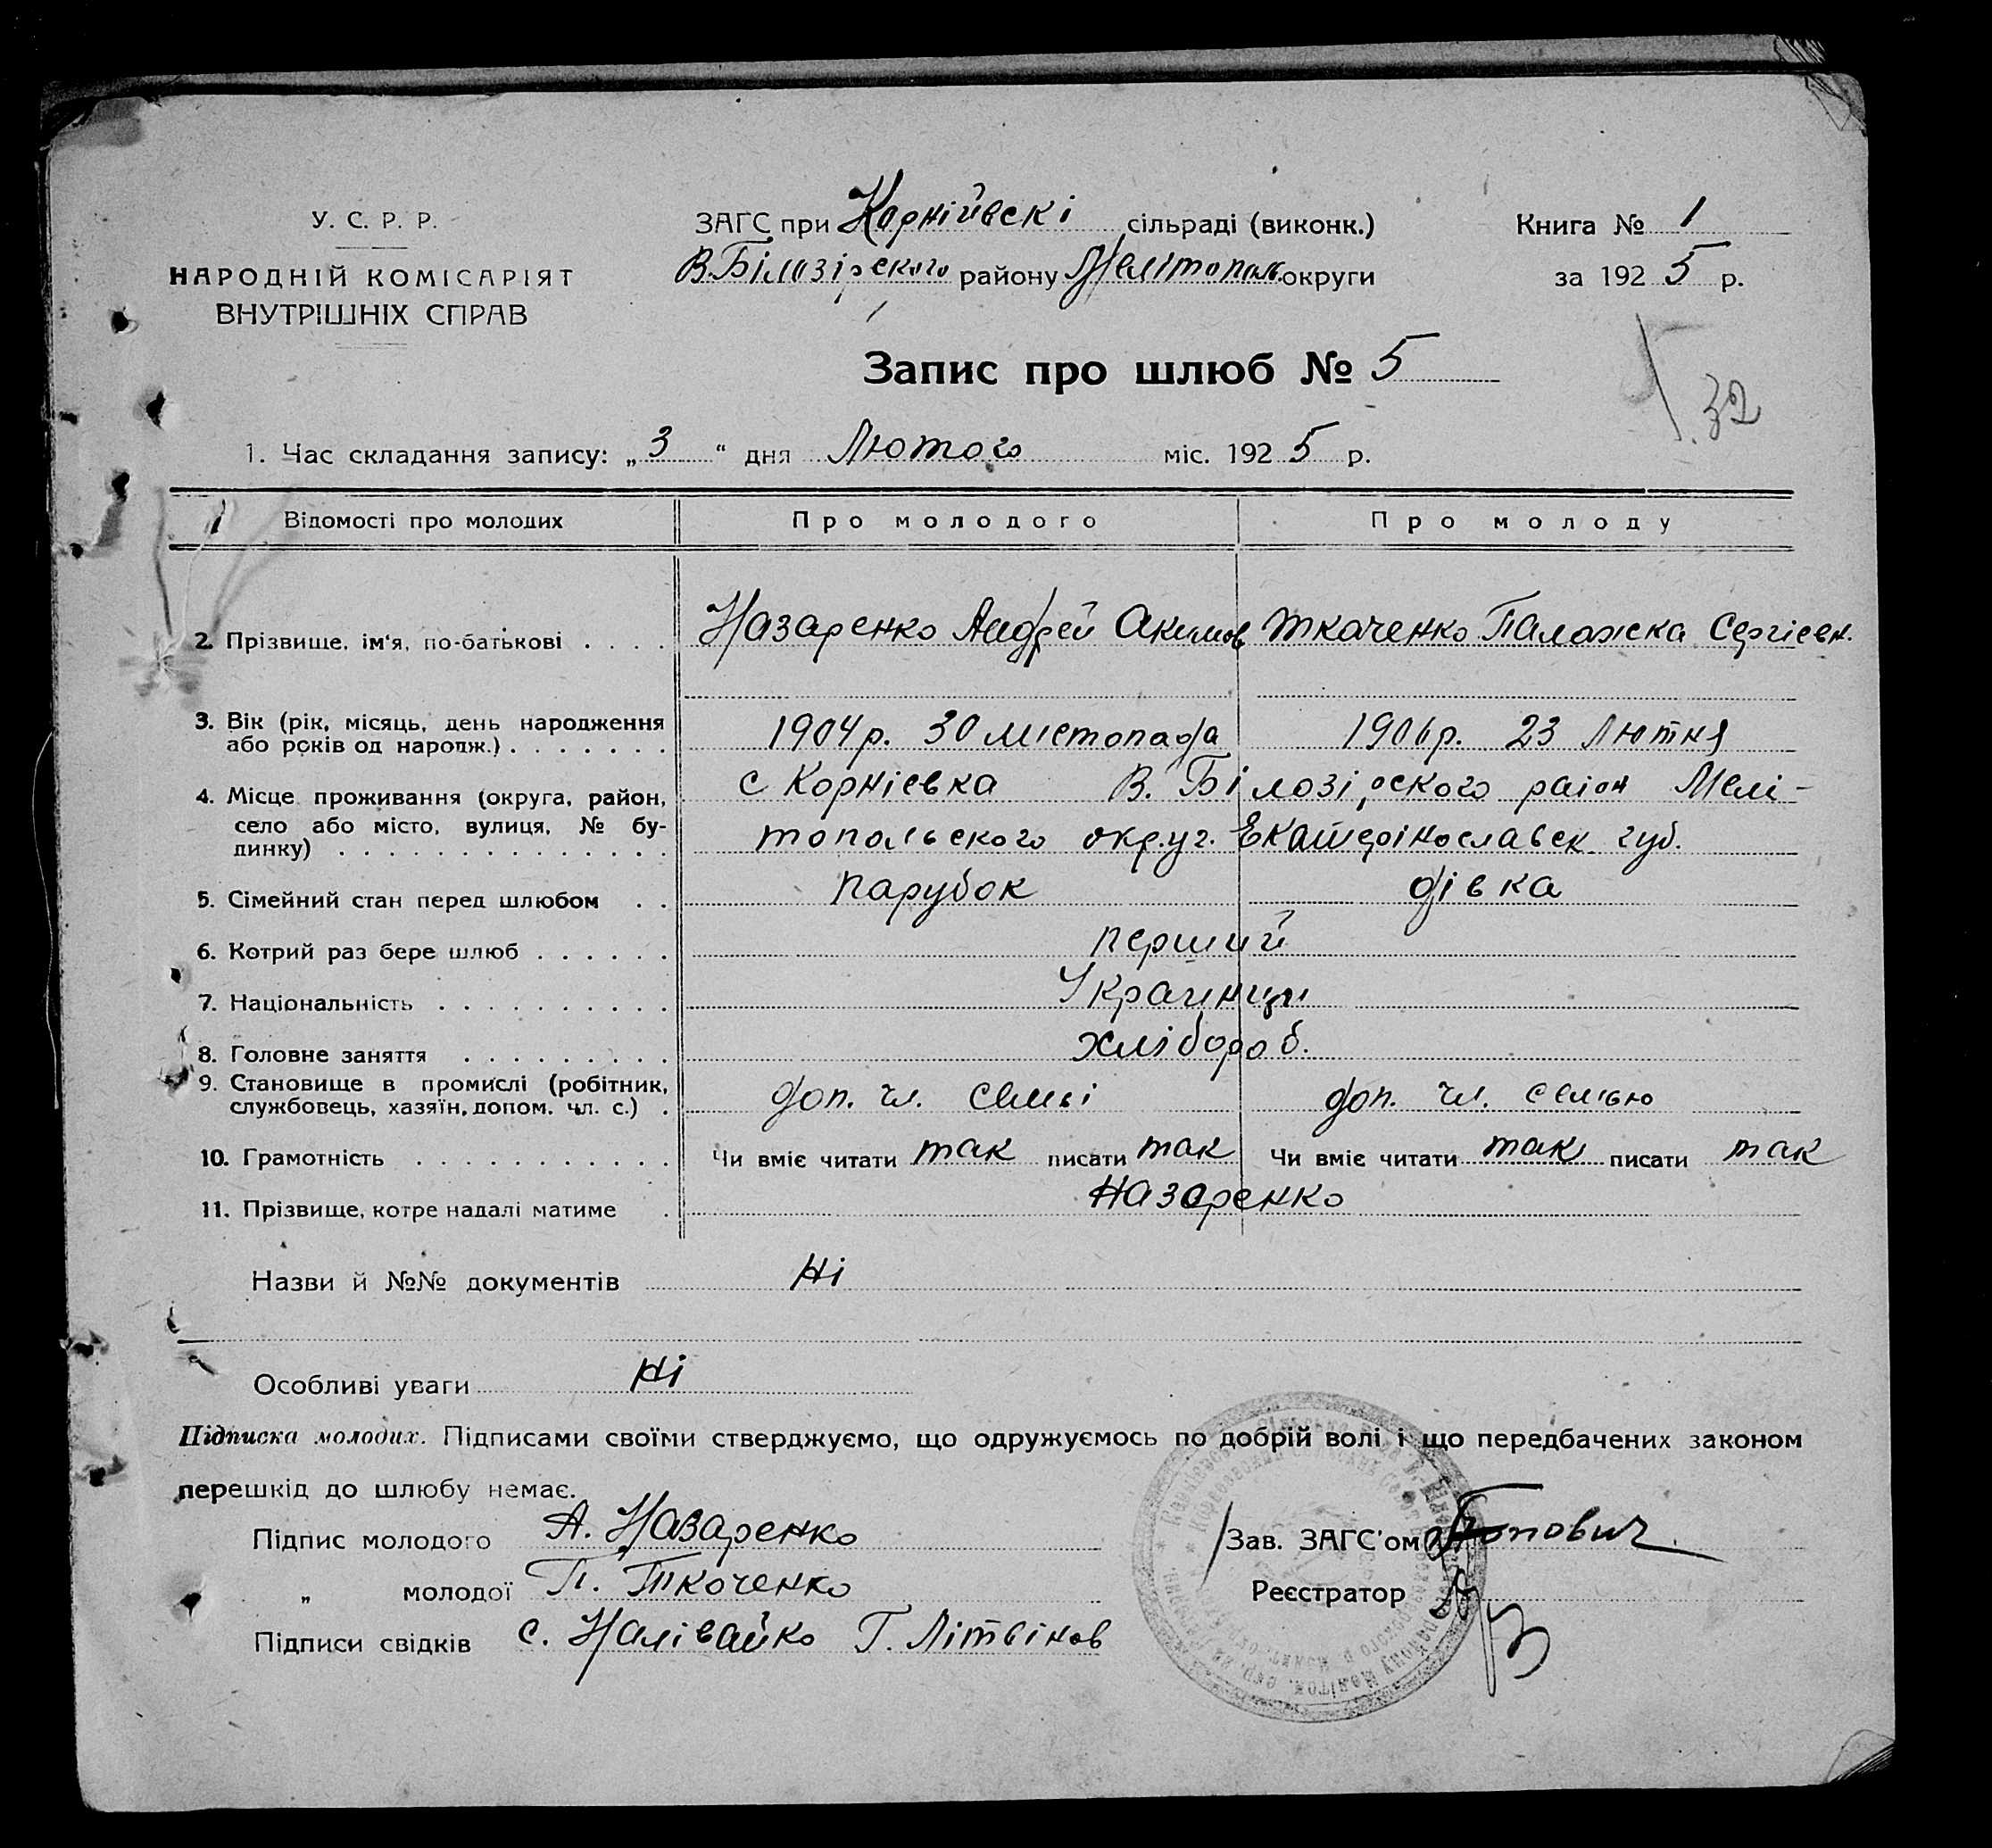 У. С. Р. Р.
НАРОДНІЙ КОМІСАРІЯТ
ВНУТРІШНІХ СПРАВ
ЗАГС при Корнійвскі сільраді (виконк.)
В.Білозірского району Мелітополь округи
Книга № 1
за 1925 р.
Запис про шлюб № 5
32
1. Час складання запису: „3“ дня Лютого міс. 1925 р.
Відомості про молодих Про молодого Про молоду
2. Прізвище, ім'я, по-батькові . . . . Назаренко Андрей Акимов Ткаченко Палажка Сергіевн.
3. Вік (рік, місяць, день народження
або років од народж.) . . . . . . . 1904р. 30 листопада 1906р. 23 Лютня
4. Місце проживання (округа, район, с Корніевка В. Білозірского раіон Мелі-
село або місто, вулиця, № бу-
динку) . . . . . . . . . . . . . . топольского округ. Екатерінославск губ.
5. Сімейний стан перед шлюбом . . парубок дівка
6. Котрий раз бере шлюб . . . . . . перший
7. Національність . . . . . . . . . . Украинци
8. Головне заняття . . . . . . . . . хлібороб.
9. Становище в промислі (робітник,
службовець, хазяїн, допом. чл. с.) . доп. чл. семьі доп. чл. семью
10. Грамотність . . . . . . . . . . . Чи вміє читати так писати так Чи вміє читати так писати так
11. Прізвище, котре надалі матиме . Назаренко
Назви й №№ документів Ні
Особливі уваги Ні
Підписка молодих. Підписами своїми стверджуємо, що одружуємось по добрій волі і що передбачених законом
перешкід до шлюбу немає.
Підпис молодого А. Назаренко
Зав. ЗАГС'ом Попович
„ молодої П. Ткоченко
Реєстратор
Підписи свідків С. Налівайко Г. Літвінов